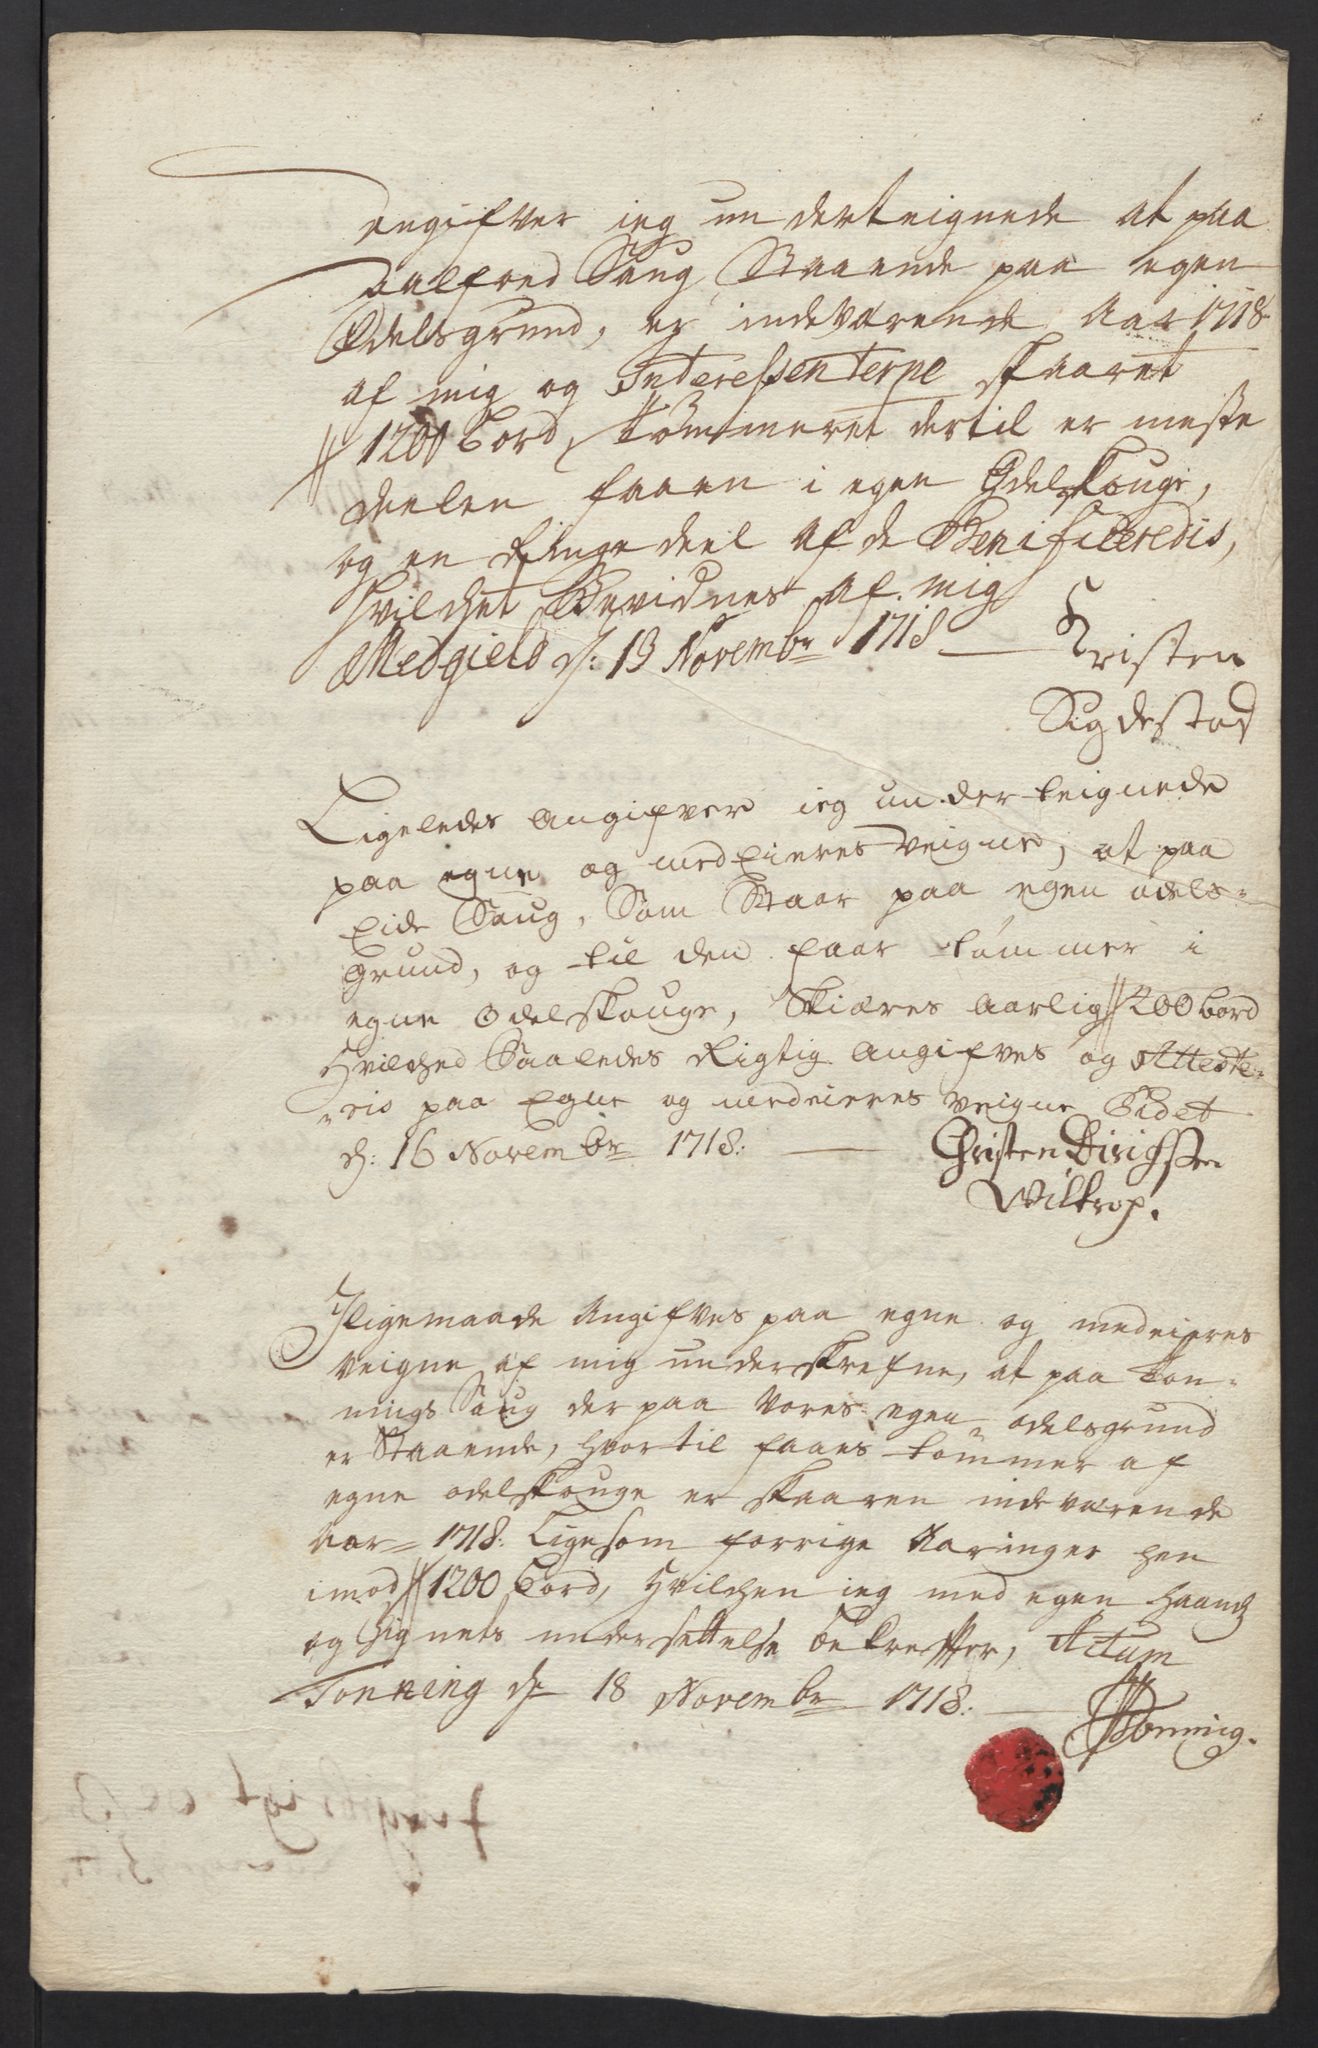 Angifver ieg underteignede at paa
Aalfoed Saug, Staaende paa egen
Odelsgrund, er indeværende Aar 1718
af mig og Interessenterne skaaret
1200 Bord, tømmeret dertil er meste
deelen faaen i egen Odelskouge,
og en Ringe deel af de Benificeredis,
hvilchet Bevidnes af mig
Medgield d: 13 Novembr 1718
Kristen
Sigdestad
Ligeledes angifver ieg underteignede
paa egne og medEieres veigne, at paa
Eide Saug, Som Staar paa egen odels-
Grund, og til den faar tømmer i
egne Odelskouge, Skiæres aarlig 200 bord
Hvilched Saaledes Rigtig angifves og Atteste-
ris paa Egne og medeieres veigne Eidet
d: 16 Novembr 1718.
Christen Dirichsen
Wiltrop.
Iligemaade Angifves paa egne og medeieres
veigne af mig underskrefne, at paa Ton-
nings Saug der paa Vores egen odelsgrund
er Staaende, hvortil faaes tømmer af
egne odelskouge er skaaren indeværende
Aar 1718. Ligesom forrige Aaringer hen
imod 1200 Bord, Hvilchen ieg med egen haand
og Signets undersettelse bekreffter, Actum
Tonning d 18 Novembr 1718.
Tonning.